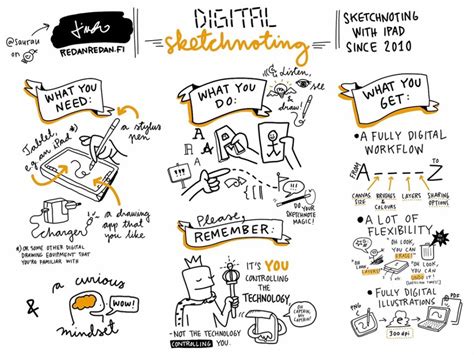 @saurau
on
REDANREDAN.FI
DIGITAL
sketchnoting
SKETCHNOTING
WITH IPAD
SINCE 2010
WHAT YOU
NEED:
Tablet,
e.g. an iPad *)
a stylus
pen
charger
a drawing
app that
you like
*) OR SOME OTHER DIGITAL
DRAWING EQUIPMENT THAT
YOU'RE FAMILIAR WITH
&
a curious
mindset
WOW!
WHAT YOU
DO:
Listen,
see
&
draw!
A
A
A
DO
YOUR
SKETCHNOTE
MAGIC!
Please,
REMEMBER:
IT'S YOU
CONTROLLING
THE
TECHNOLOGY
-NOT THE TECHNOLOGY
CONTROLLING YOU.
OH
CAPTAIN,
MY
CAPTAIN!
WHAT YOU
GET:
• A FULLY DIGITAL
WORKFLOW
FROM
A
TO
Z
CANVAS
SIZE
BRUSHES &
COLOURS
LAYERS
SHAPING
OPTIONS
• A LOT OF
FLEXIBILITY
"OH LOOK,
LAYERS!"
"OH LOOK,
YOU CAN
ERASE!"
"OH LOOK,
YOU CAN
UNDO IT!"
• FULLY DIGITAL
ILLUSTRATIONS
PNG
300 dpi
PDF